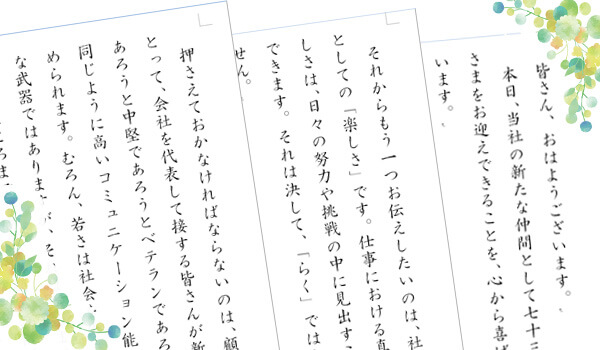 皆さん、おはようございます。
本日、当社の新たな仲間として七十三
さまをお迎えできることを、心から喜
います。
それからもう一つお伝えしたいのは、社
としての「楽しさ」です。仕事における真
しさは、日々の努力や挑戦の中に見出す
できます。それは決して、「らく」では
せん。
押さえておかなければならないのは、顧
とって、会社を代表して接する皆さんが新
あろうと中堅であろうとベテランであろ
同じように高いコミュニケーション能
められます。むろん、若さは社会
な武器ではありま